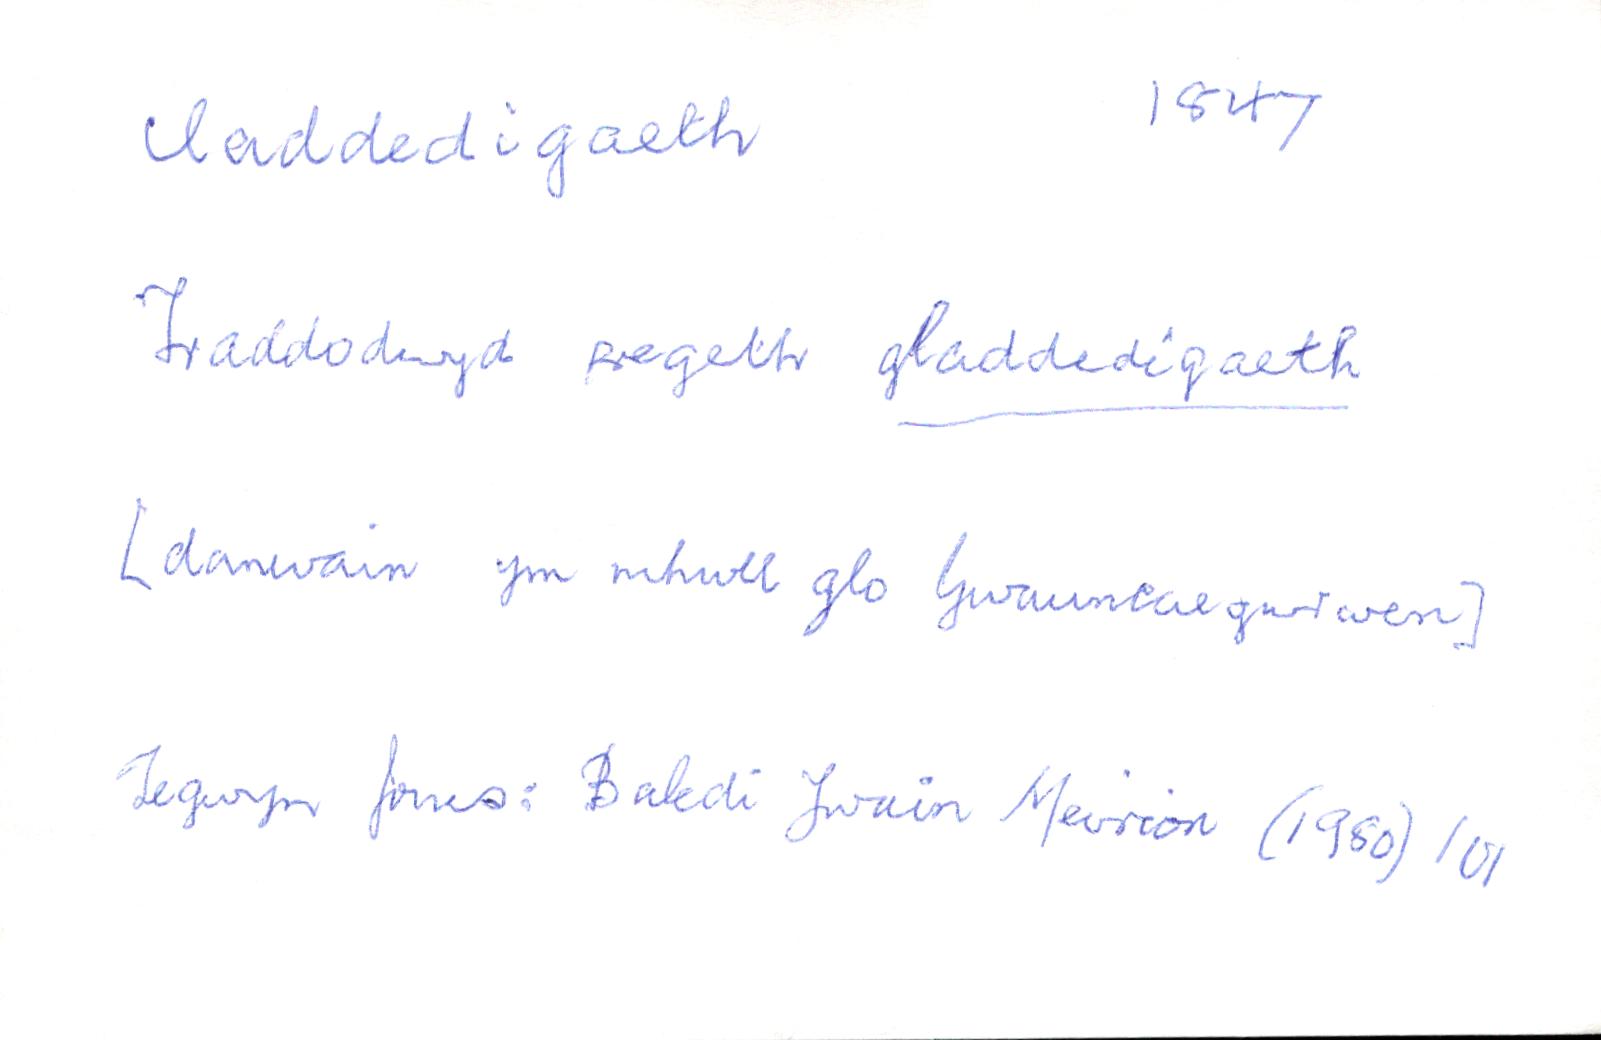 claddedigaeth 1847
Traddodwyd pregeth gladdedigaeth
[damwain ym mhwll glo Gwauncaegurwen]
Tegwyn Jones: Baledi Ywain Meirion (1980) 101